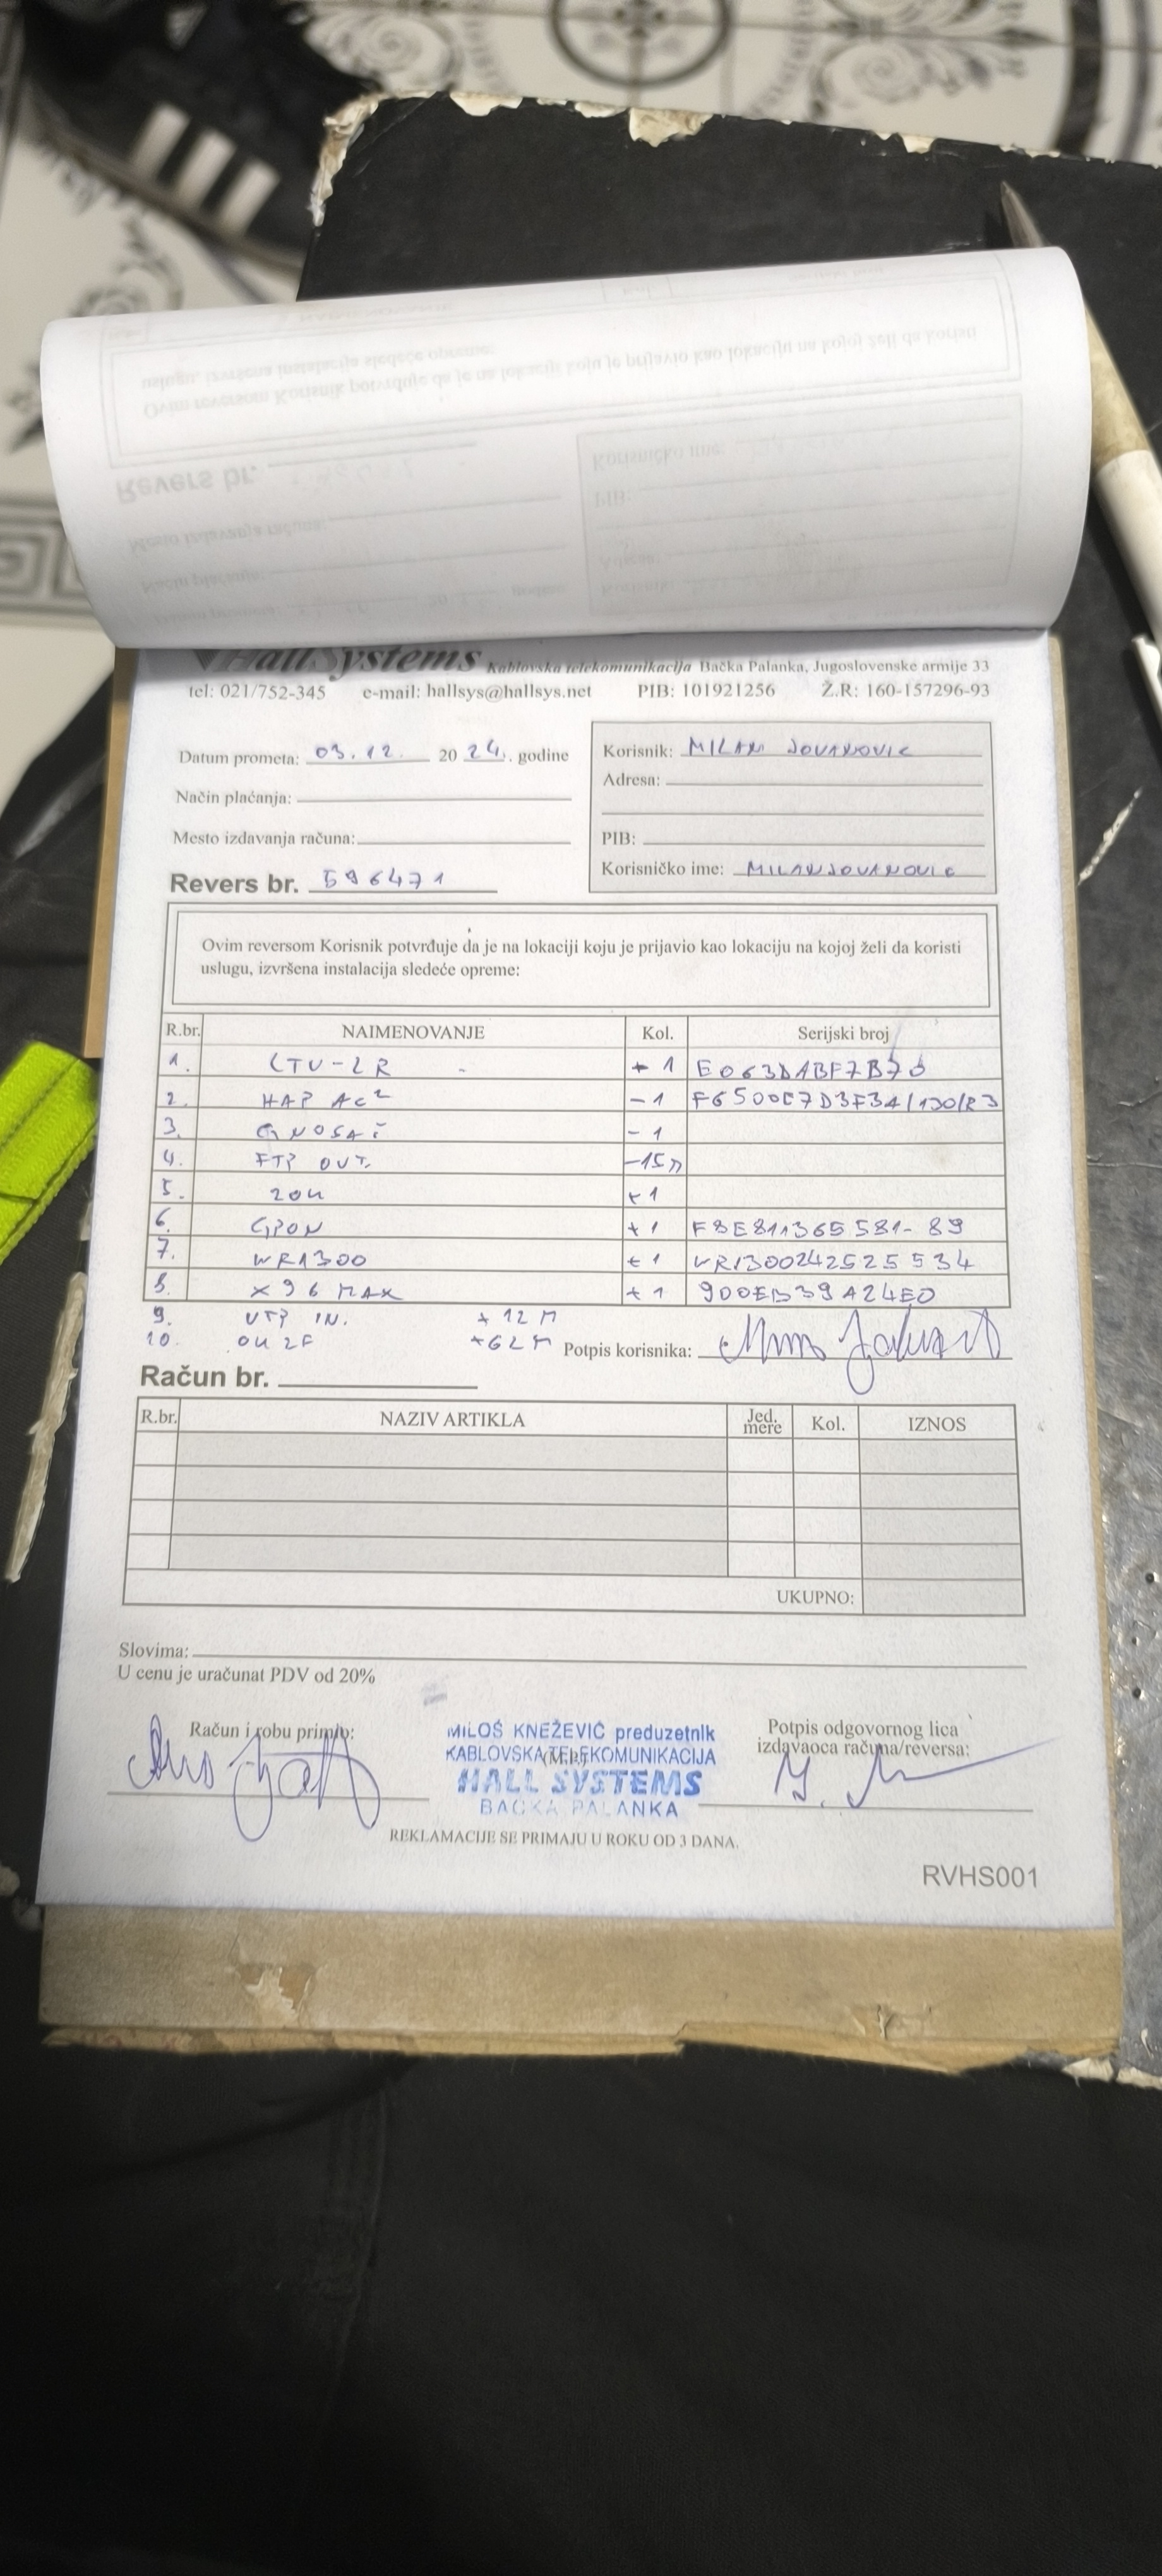 HallSystems Kablovska telekomunikacija Bačka Palanka, Jugoslovenske armije 33
tel: 021/752-345 e-mail: hallsys@hallsys.net PIB: 101921256 Ž.R: 160-157296-93
Datum prometa: 03.12. 2024. godine
Način plaćanja:
Mesto izdavanja računa:
Revers br. 596471
Korisnik: MILAN JOVANOVIC
Adresa:
PIB:
Korisničko ime: MILANJOVANOVIC
Ovim reversom Korisnik potvrđuje da je na lokaciji koju je prijavio kao lokaciju na kojoj želi da koristi
uslugu, izvršena instalacija sledeće opreme:
R.br. NAIMENOVANJE Kol. Serijski broj
1. LTU-LR + 1 E063DABF7B70
2. HAP AC² - 1 F6500C7D3F34/130/R3
3. - 1
4. FTP OUT. -15m
5. ZOK +1
6. GPON +1 F8E811365581-89
7. WR1300 +1 WR1300242525534
8. X96 MAX +1 90OEB39A24E0
9. UTP IN. + 12 M
10. OK 2F +62 M
Potpis korisnika:
Račun br.
R.br. NAZIV ARTIKLA Jed. mere Kol. IZNOS
UKUPNO:
Slovima:
U cenu je uračunat PDV od 20%
Račun i robu primio:
MILOŠ KNEŽEVIĆ preduzetnik
KABLOVSKA TELEKOMUNIKACIJA
(M.P.)
HALL SYSTEMS
BAČKA PALANKA
Potpis odgovornog lica
izdavaoca računa/reversa:
REKLAMACIJE SE PRIMAJU U ROKU OD 3 DANA.
RVHS001